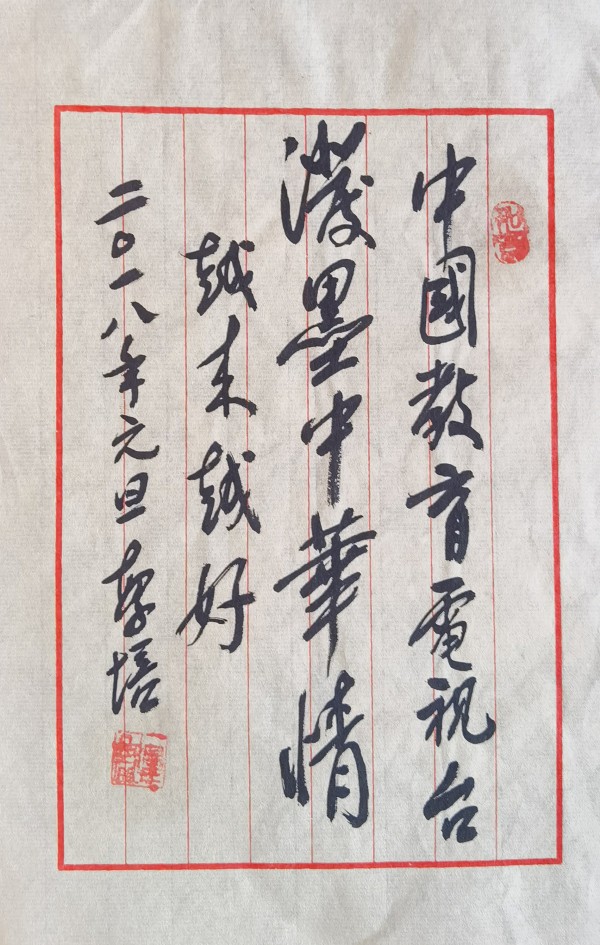 中國教育電視台
潑墨中華情
越来越好
二〇一八年元旦